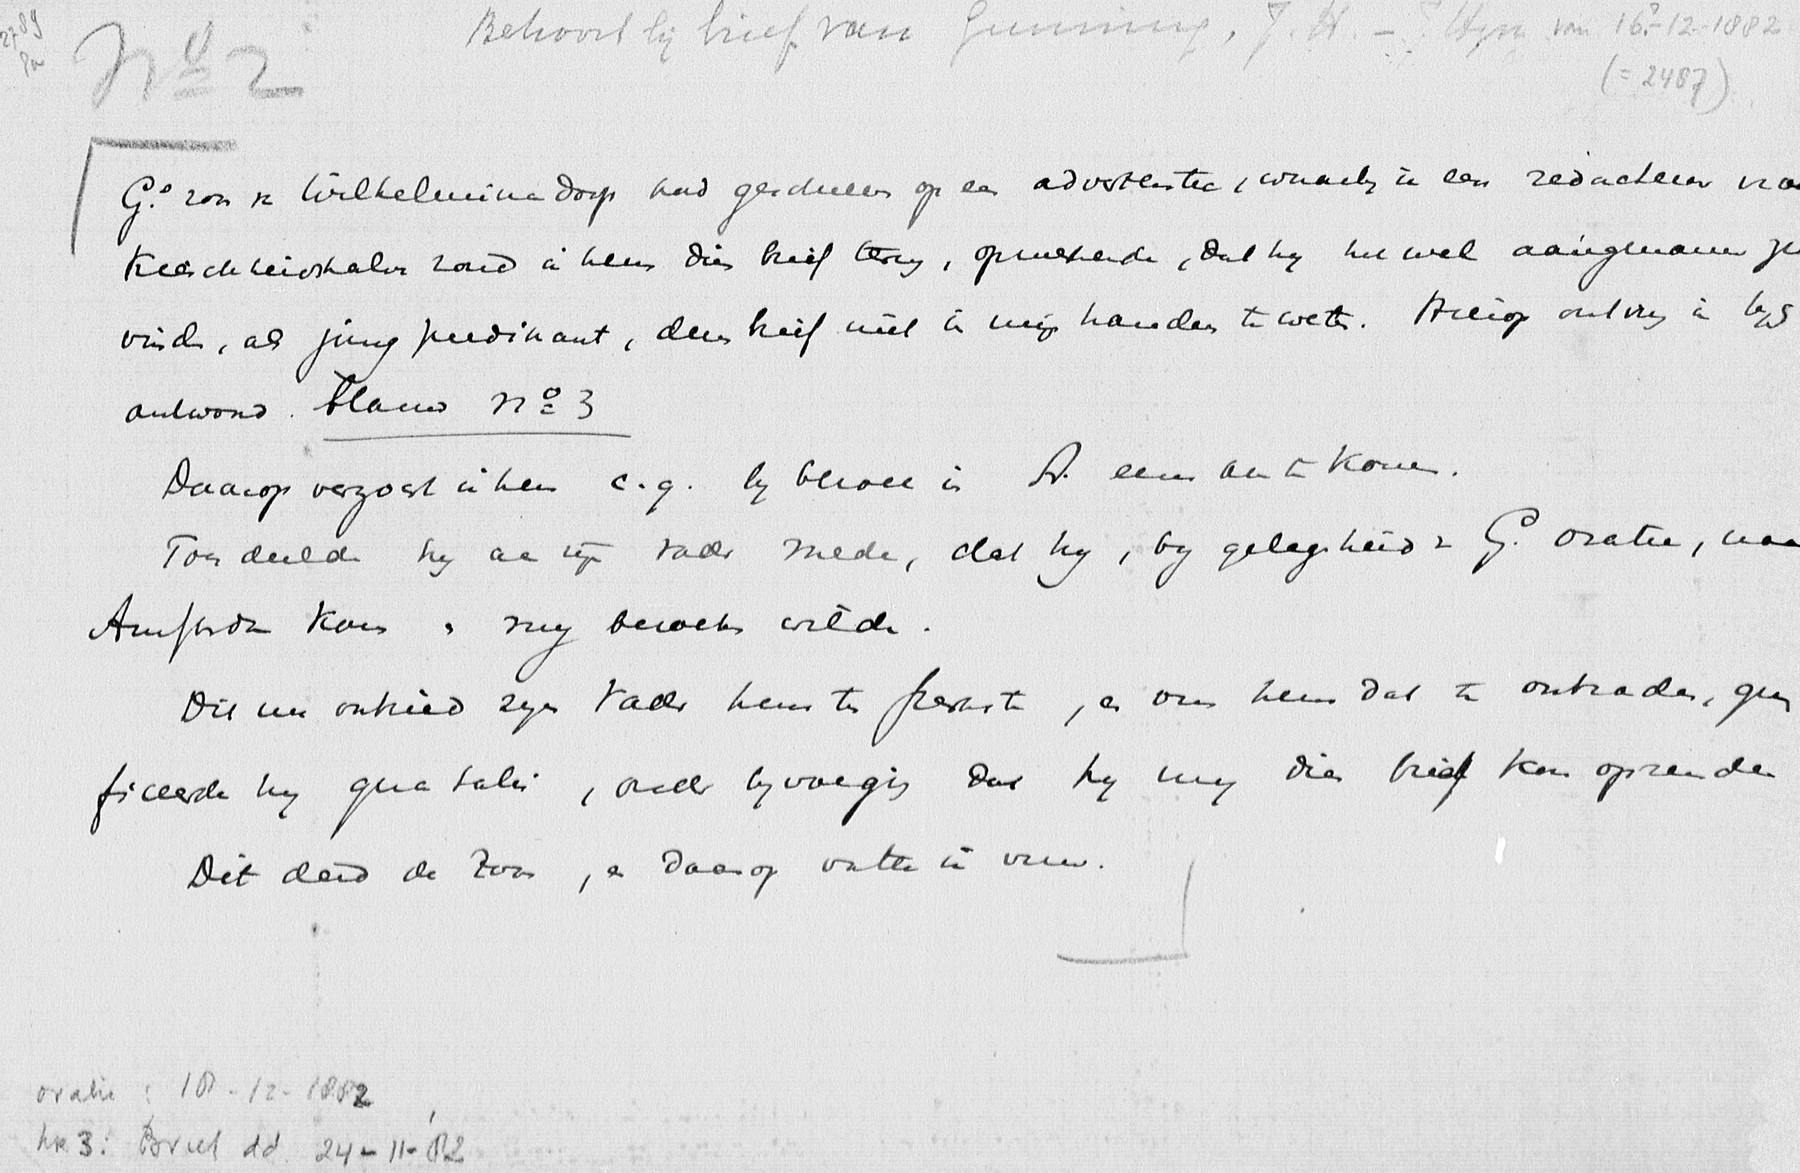 2789
Pa
Nº 2
Behoort bij brief van Gunning, J. H. - van 16?-12-1882
(= 2487)
G.s zoon te Wilhelminadorp had geschreven op een advertentie, waarbij ik een redacteur
zond ik hem dien brief terug, opmerkende, dat hij het wel aangenaam
vinden, als jong predikant, dien brief niet in mijn handen te weten. Hierop ontving ik bijg
antwoord. blauw Nº 3
Daarop verzocht ik hem c.q. bij bezoek in A. eens aan te komen.
Toen deelde hij aan zijn vader mede, dat hij, bij gelegenheid v G.s oratie, naar
Amsterdam kwam & mij bezoeken wilde.
Dit nu ontried zijn Vader hem ten sterkste, en om hem dat te ontraden,
ficeerde hij qua talis, onder bijvoeging dat hij mij dien brief kon opzenden
Dit deed de Zoon, en daarop vatte ik vuur.
oratie : 18-12-1882
nr 3: Brief dd. 24-11-'82